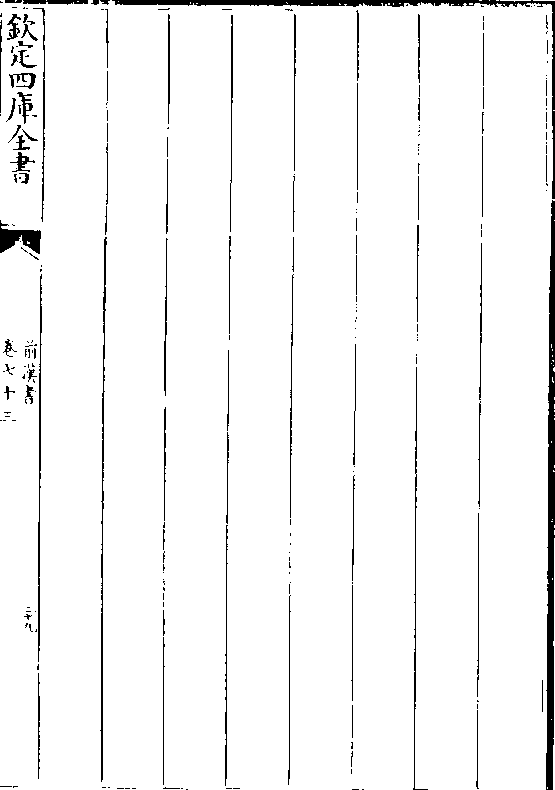 欽定四庫全書
前漢書
卷七十三
二十九